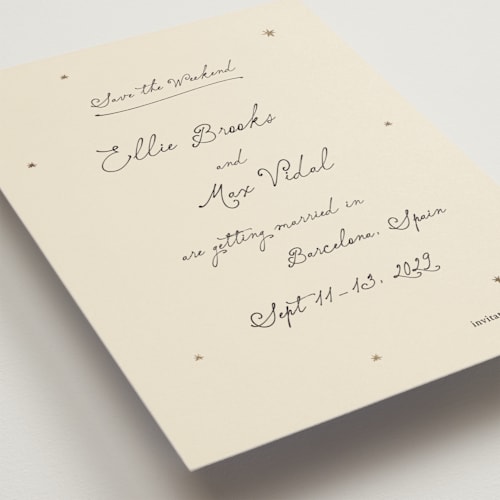 Save the Weekend
Ellie Brooks
and
Max Vidal
are getting married in
Barcelona, Spain
Sept 11-13, 2029